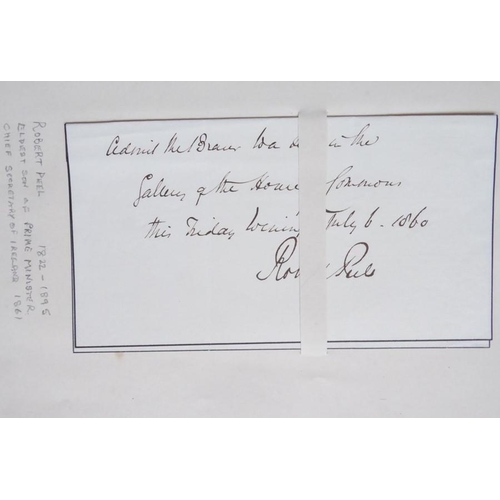 Admit the Bearer in the
Gallery of the House Commons
this Friday Evening July 6. 1860
Robt Peel
ROBERT PEEL 1822-1895
ELDEST SON OF PRIME MINISTER.
CHIEF SECRETARY OF IRELAND 1861